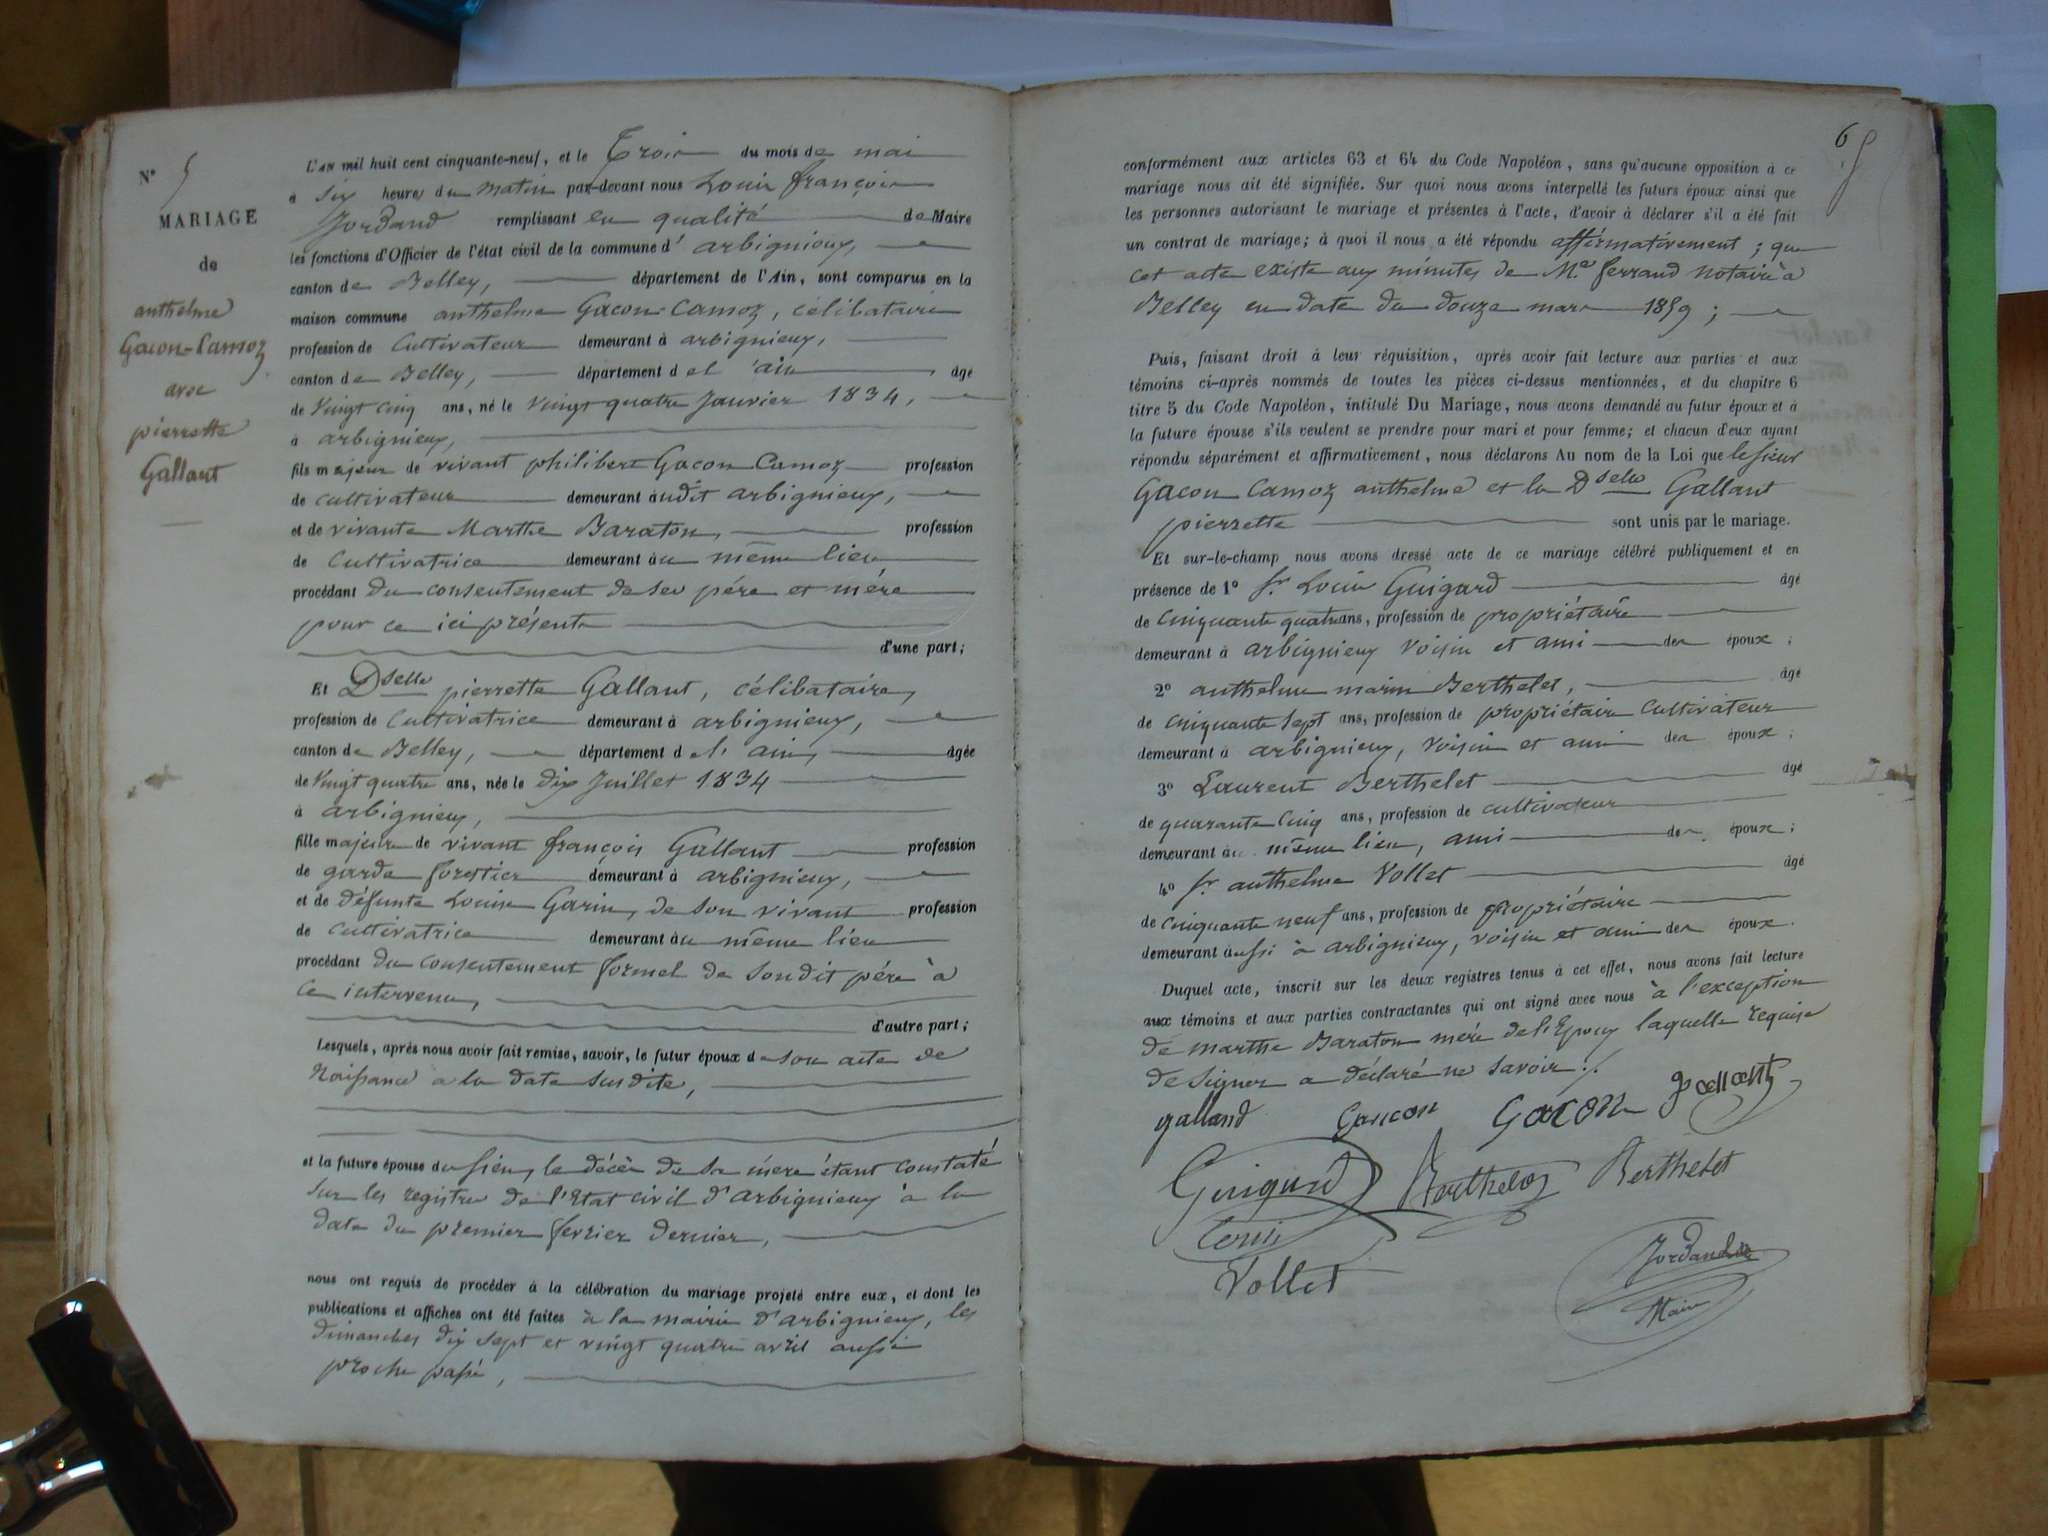 N° 5
MARIAGE
de
anthelme
Gacon-Camoz
avec
pierrette
Gallant
L'AN mil huit cent cinquante-neuf, et le Trois du mois de mai
à six heures du matin par-devant nous Louis françois
Jordand remplissant en qualité de Maire
les fonctions d'Officier de l'état civil de la commune d' arbignieux,
canton de Belley, département de l'Ain, sont comparus en la
maison commune anthelme Gacon-Camoz, célibataire
profession de Cultivateur demeurant à arbignieux,
canton de Belley, département de l'ain âgé
de vingt cinq ans, né le vingt quatre Janvier 1834,
à arbignieux,
fils majeur de vivant philibert Gacon Camoz profession
de cultivateur demeurant audit arbignieux,
et de vivante Marthe Baraton, profession
de Cultivatrice demeurant au même lieu
procédant du consentement de ses père et mère
pour ce ici présents
d'une part;
Et Dselle pierrette Gallant, célibataire,
profession de Cultivatrice demeurant à arbignieux,
canton de Belley, département de l'ain, âgée
de vingt quatre ans, née le dix Juillet 1834
à arbignieux,
fille majeure de vivant françois Gallant profession
de garde forestier demeurant à arbignieux,
et de défunte Louise Garin, de son vivant profession
de cultivatrice demeurant au même lieu
procédant du consentement formel de son dit père à
ce intervenu,
d'autre part;
Lesquels, après nous avoir fait remise, savoir, le futur époux de son acte de
Naissance a la date susdite,
et la future épouse du sien, le décès de sa mère étant constaté
sur les registres de l'Etat civil d'arbignieux à la
date du premier fevrier dernier,
nous ont requis de procéder à la célébration du mariage projeté entre eux, et dont les
publications et affiches ont été faites à la mairie d'arbignieux, les
dimanches dix sept et vingt quatre avril aussi
proche passé,
6
conformément aux articles 63 et 64 du Code Napoléon, sans qu'aucune opposition à ce
mariage nous ait été signifiée. Sur quoi nous avons interpellé les futurs époux ainsi que
les personnes autorisant le mariage et présentes à l'acte, d'avoir à déclarer s'il a été fait
un contrat de mariage; à quoi il nous a été répondu affirmativement; que
cet acte existe aux minutes de Me ferrand notaire à
Belley en date du douze mars 1859;
Puis, faisant droit à leur réquisition, après avoir fait lecture aux parties et aux
témoins ci-après nommés de toutes les pièces ci-dessus mentionnées, et du chapitre 6
titre 5 du Code Napoléon, intitulé Du Mariage, nous avons demandé au futur époux et à
la future épouse s'ils veulent se prendre pour mari et pour femme; et chacun d'eux ayant
répondu séparément et affirmativement, nous déclarons Au nom de la Loi que le sieur
Gacon Camoz anthelme et la Dselle Gallant
pierrette sont unis par le mariage.
Et sur-le-champ nous avons dressé acte de ce mariage célébré publiquement et en
présence de 1° Sr. Louis Guigard âgé
de Cinquante quatre ans, profession de propriétaire
demeurant à arbignieux voisin et ami des époux;
2° anthelme marin Berthelet, âgé
de cinquante sept ans, profession de propriétaire cultivateur
demeurant à arbignieux, voisin et ami des époux;
3° Laurent Berthelet âgé
de quarante cinq ans, profession de cultivateur
demeurant au même lieu, ami des époux;
4° Sr anthelme Vollet âgé
de cinquante neuf ans, profession de propriétaire
demeurant aussi à arbignieux, voisin et ami des époux.
Duquel acte, inscrit sur les deux registres tenus à cet effet, nous avons fait lecture
aux témoins et aux parties contractantes qui ont signé avec nous à l'exception
de marthe Baraton mère de l'Epoux laquelle requise
de signer a déclaré ne savoir ./.
galland Gancon Gacon gallant
Guigard Berthelot Berthelet
Louis
Vollet
Jordand
Maire